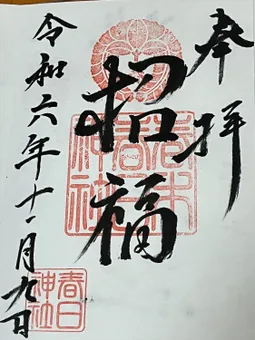 奉拝
招福
令和六年十一月九日
春日神社